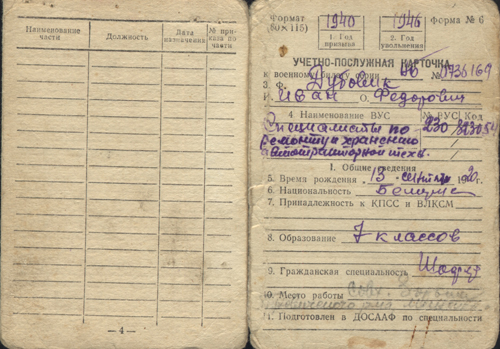 Наименование части
Должность
Дата назначения
№ приказа по части
— 4 —
Формат (80×115)
1940
1946
Форма № 6
1. Год призыва
2. Год увольнения
УЧЕТНО-ПОСЛУЖНАЯ КАРТОЧКА
к военному билету серии №
3. Ф. Дубовик
И. Иван О. Федорович
4. Наименование ВУС № ВУС Код
Специалисты по 230
ремонту и хранению
автотракторной техн.
I. Общие сведения
5. Время рождения 13 1920г.
6. Национальность
7. Принадлежность к КПСС и ВЛКСМ
8. Образование 7 классов
9. Гражданская специальность Шофер
10. Место работы
11. Подготовлен в ДОСААФ по специальности